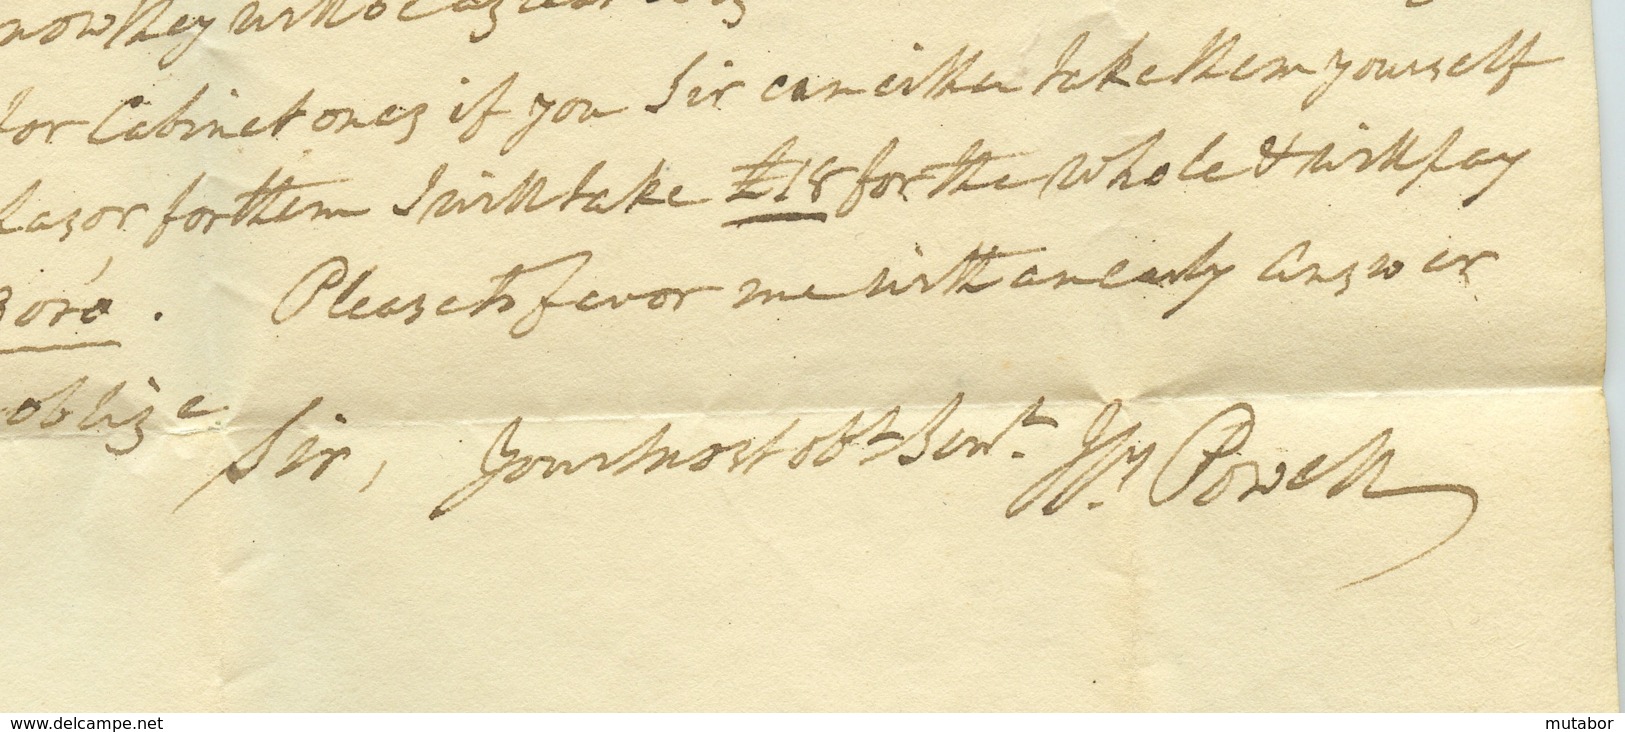 now they will
for Cabinet ones if you Sir can either take them yourself
for them I will take £18 for the whole & will pay
boro'. Please to favor me with an early answer
oblige
Sir, Your most obt Servt. Powell
www.delcampe.net mutabor